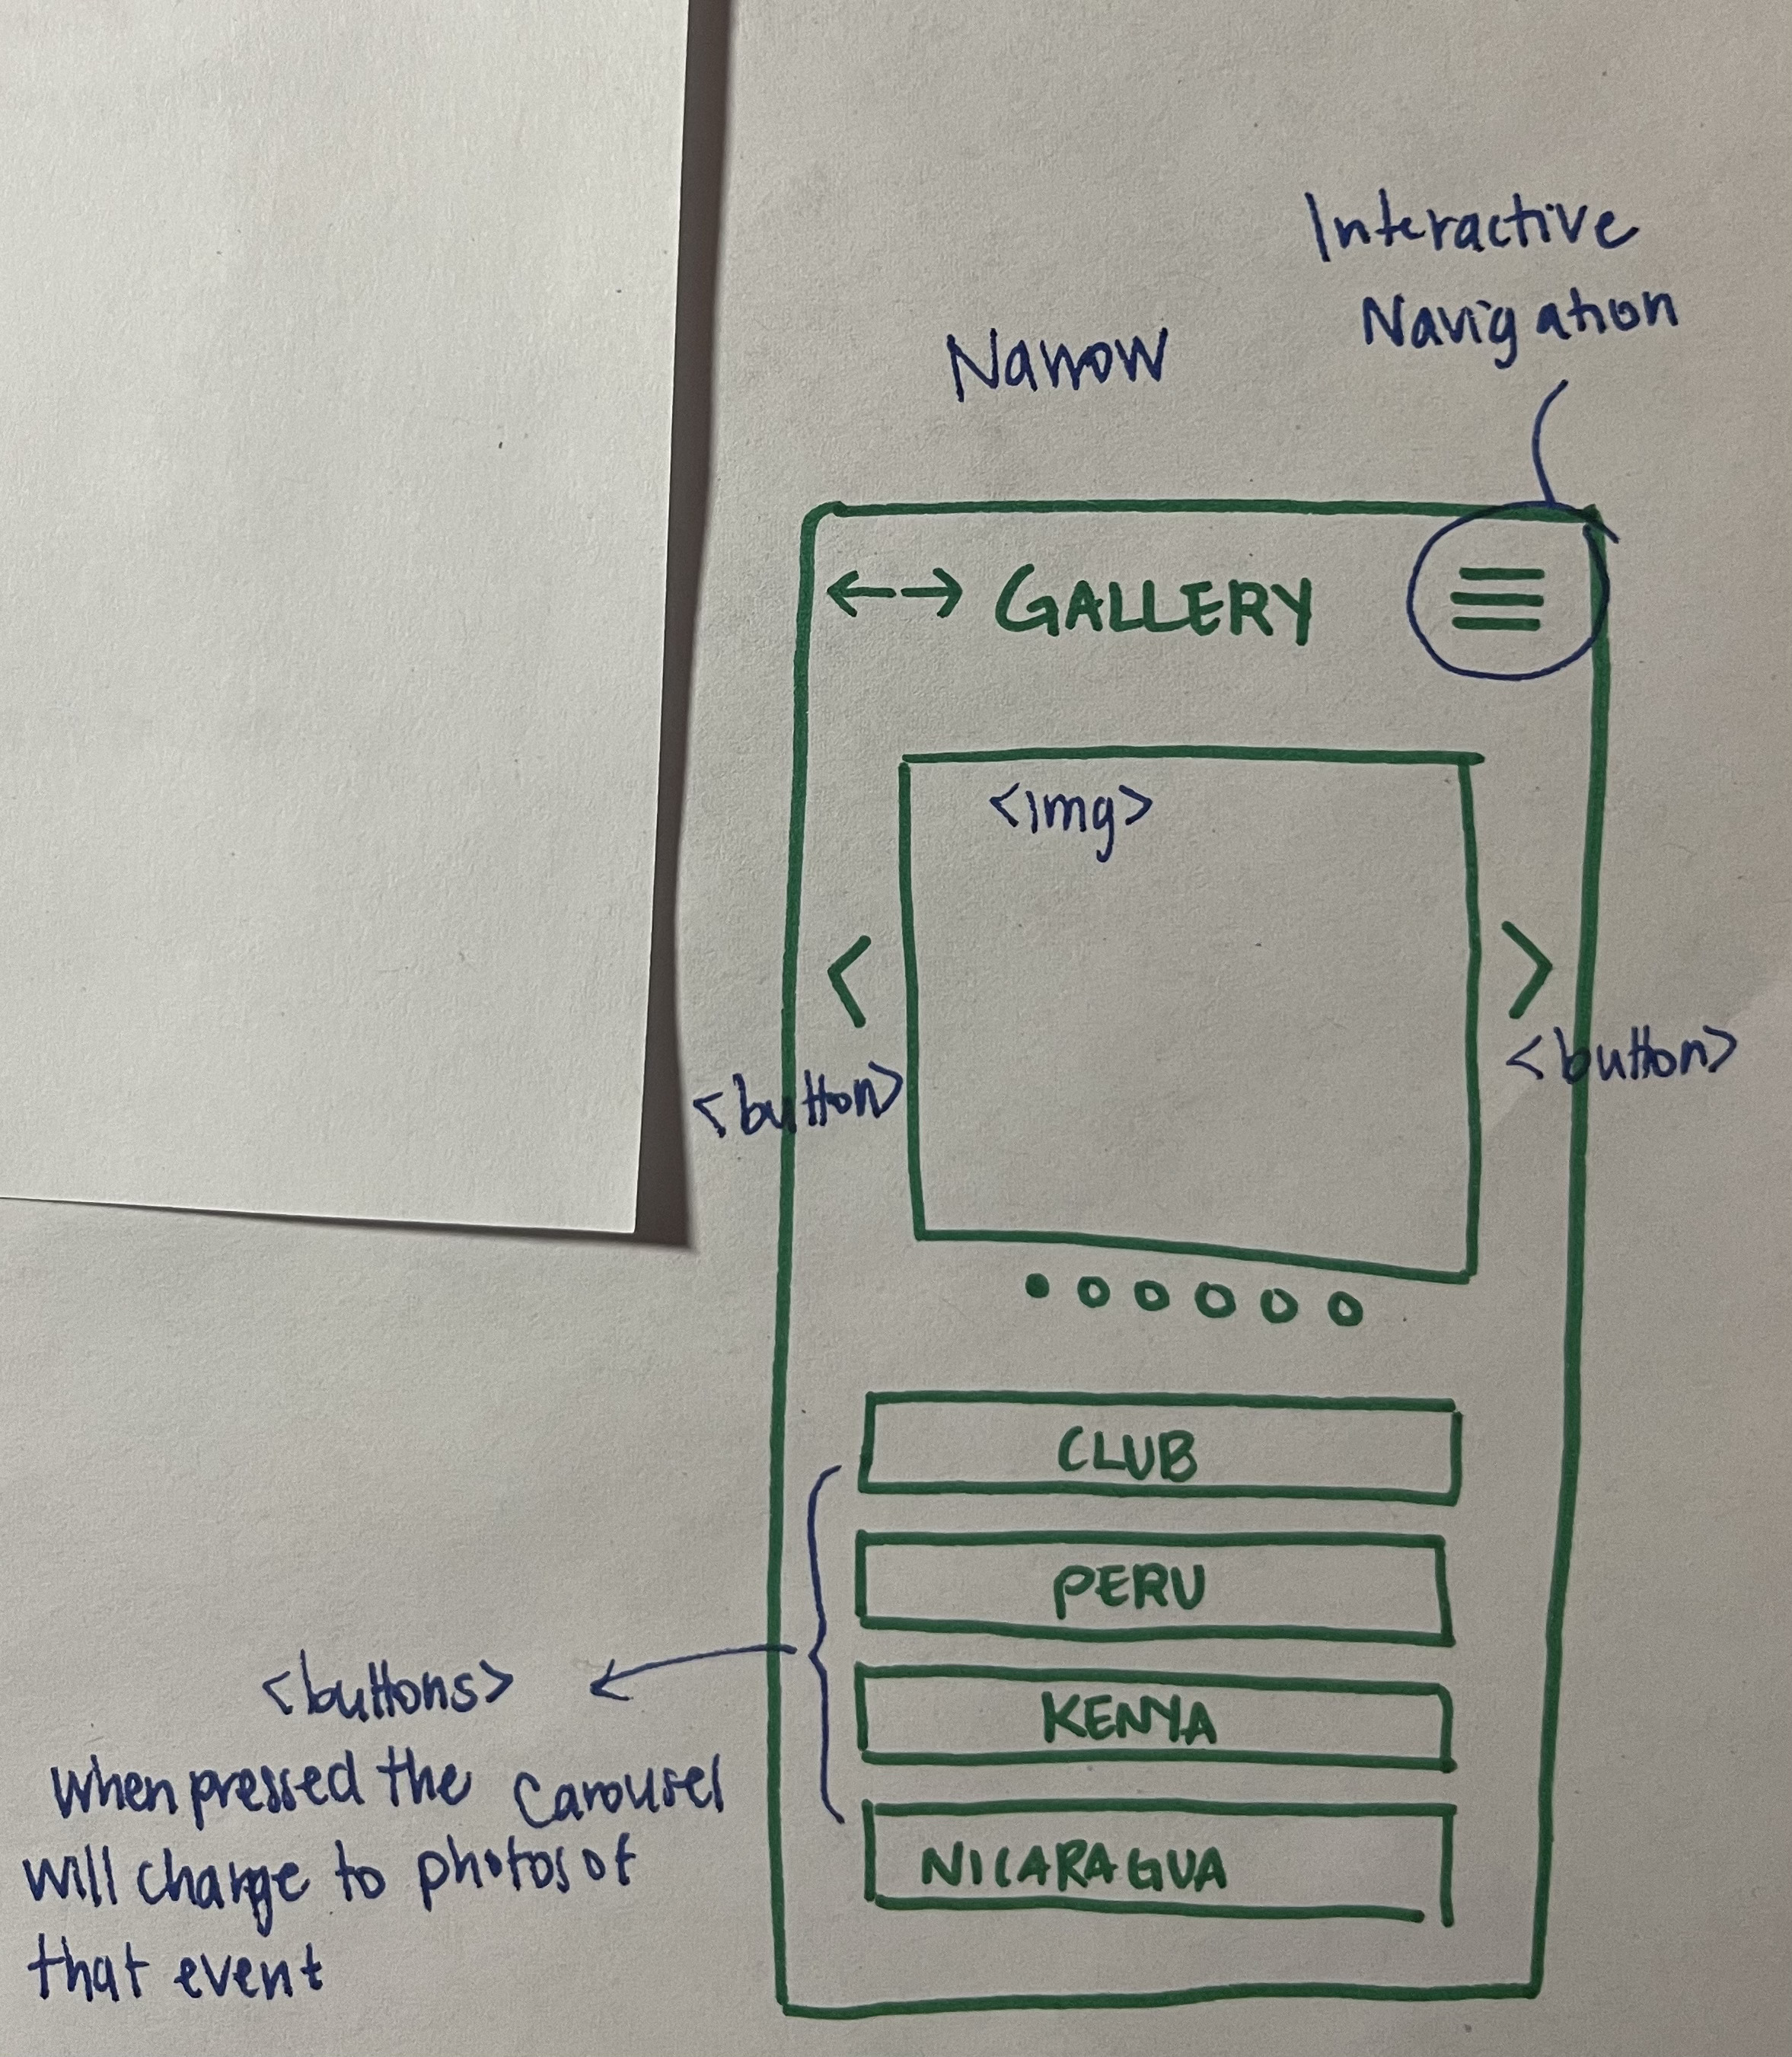 Interactive
Navigation
Narrow
GALLERY
<img>
<button>
<button>
CLUB
PERU
KENYA
NICARAGUA
<buttons>
when pressed the carousel
will change to photos of
that event